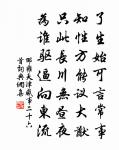 了生始可言常事
知性方能議大猷
只此長川無晝夜
為誰驅逼向東流
邵雍天津感事二十六
首詞典網集